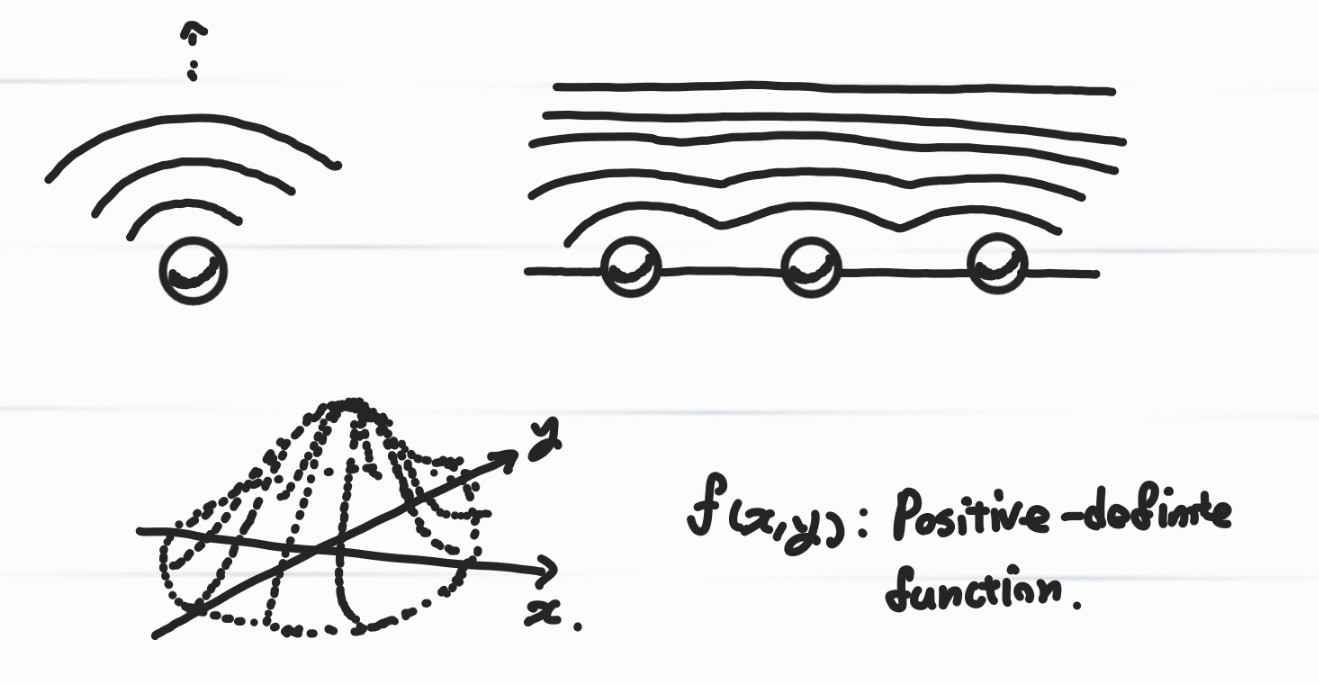 y
x.
f(x,y): Positive-definite
function.